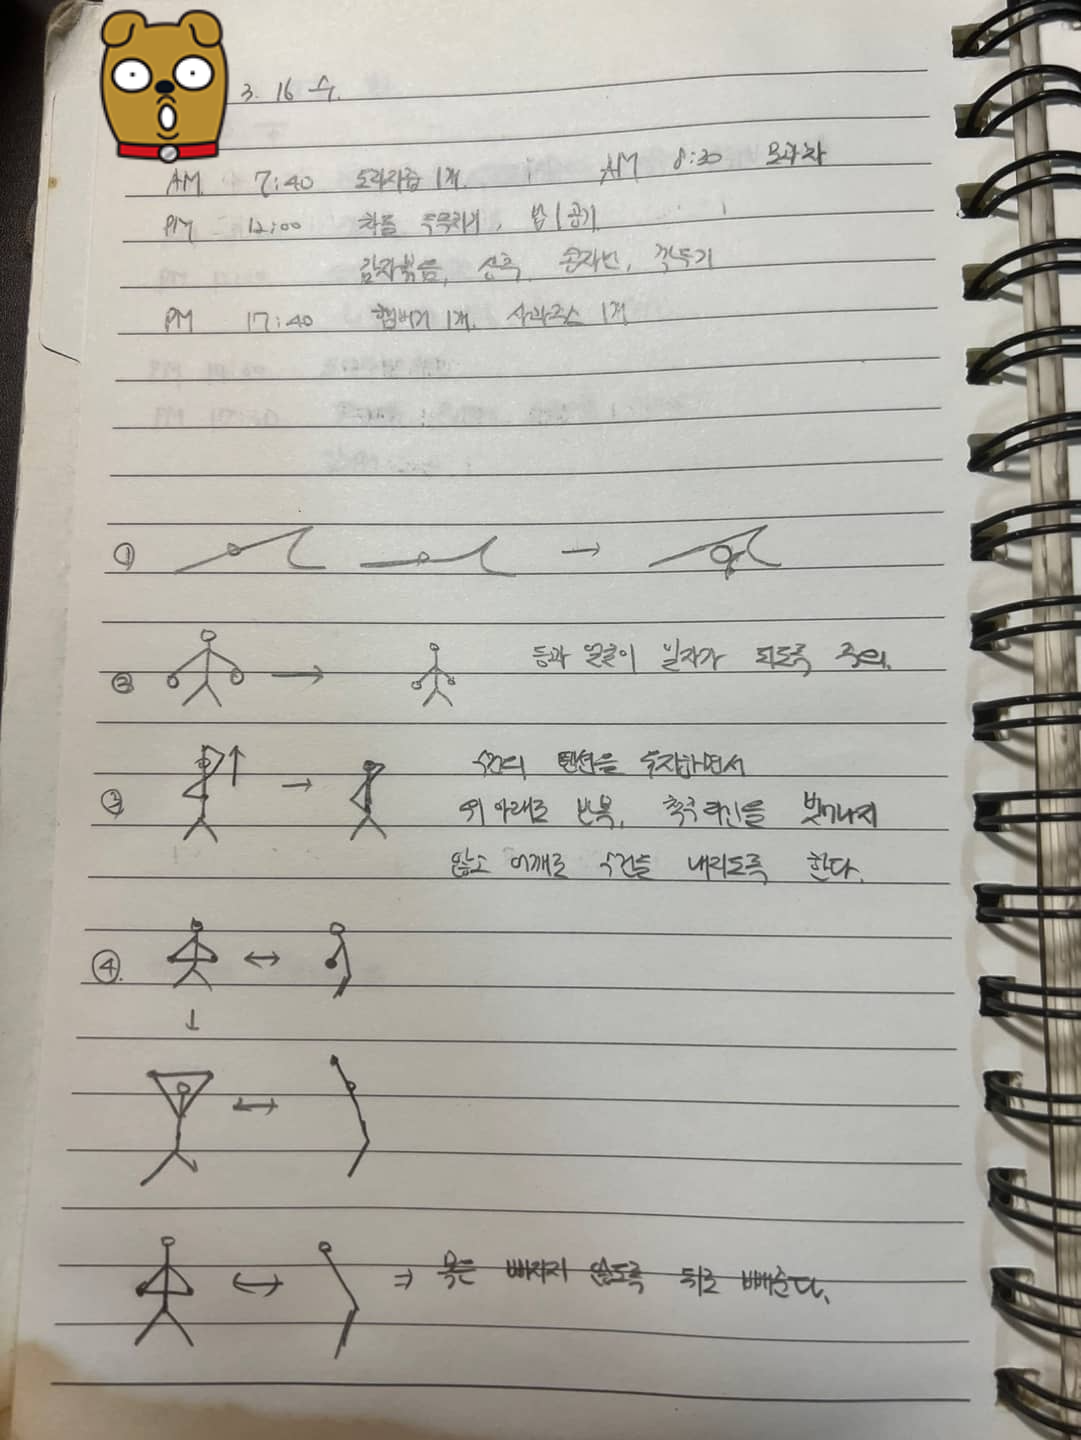 3. 16 수.
AM. 7:40 도라지즙 1개. AM 8:30 모과차
PM 12:00 차돌 두루치기, 밥 1공기
감자볶음, 산적, 깍두기
PM 17:40 햄버거 1개. 사과주스 1개
①
② 등과 얼굴이 일자가 되도록 주의.
③ 수건의 텐션을 유지하면서
위 아래로 반복, 척추라인을 벗어나지
않고 어깨로 수건을 내리도록 한다.
④.
목은 빠지지 않도록 뒤로 빼준다.